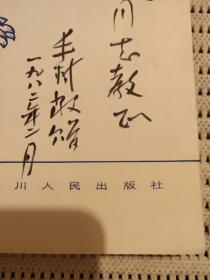 川志教正
丰村敬赠
一九八二年二月
川人民出版社